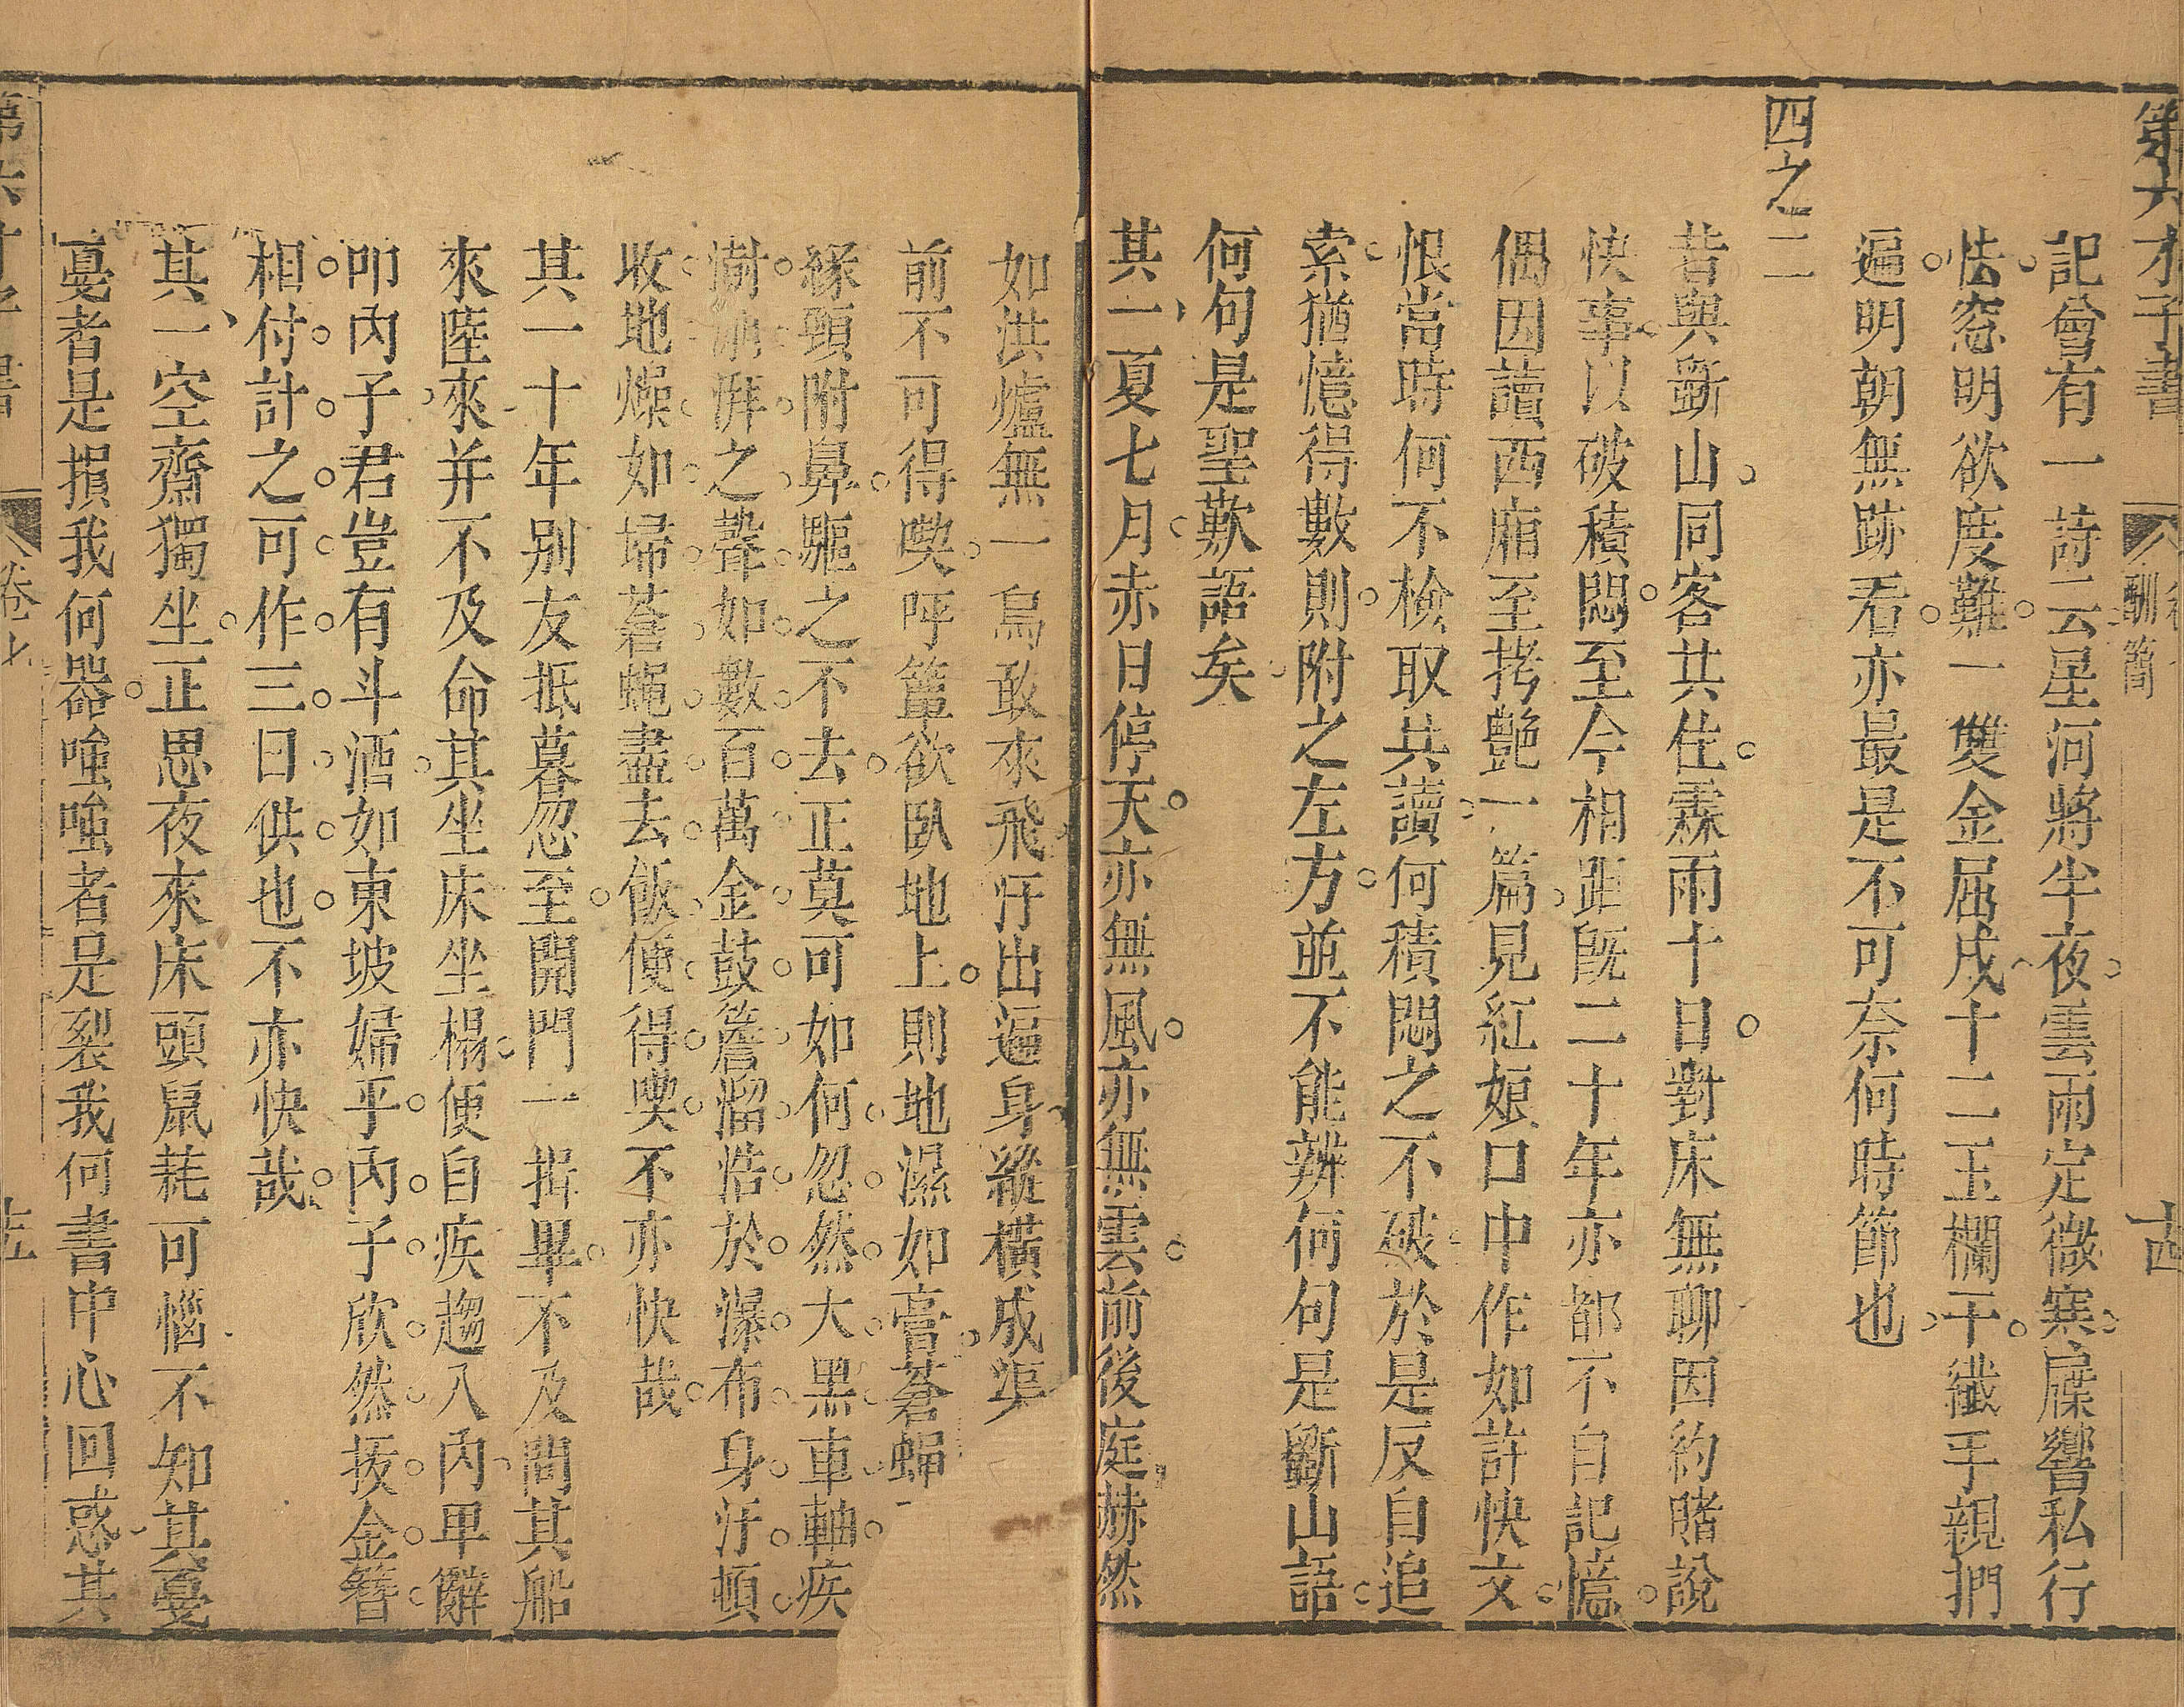 第六才子書
酬簡
十四
記曾有一詩云星河將半夜雲雨定微寒屧響私行
怯窓明欲度難一雙金屈戍十二玉欄干纖手親捫
遍明朝無跡看亦最是不可奈何時節也
四之二
昔與斲山同客共住霖雨十日對床無聊因約賭說
快事以破積悶至今相距既二十年亦都不自記憶
偶因讀西廂至拷艷一篇見紅娘口中作如許快文
恨當時何不檢取共讀何積悶之不破於是反自追
索猶憶得數則附之左方並不能辨何句是斲山語
何句是聖歎語矣
其一夏七月赤日停天亦無風亦無雲前後庭赫然
如洪爐無一鳥敢來飛汗出遍身縱橫成渠
前不可得喫呼簟欲臥地上則地濕如膏蒼蠅
緣頸附鼻驅之不去正莫可如何忽然大黑車軸疾
澍澎湃之聲如數百萬金鼓簷溜浩於瀑布身汗頓
收地燥如埽蒼蠅盡去飯便得喫不亦快哉
其一十年別友抵暮忽至開門一揖畢不及問其船
來陸來并不及命其坐床坐榻便自疾趨入內卑辭
叩內子君豈有斗酒如東坡婦乎內子欣然拔金簪
相付計之可作三日供也不亦快哉
其一空齋獨坐正思夜來床頭鼠耗可惱不知其戛
戛者是損我何器嗤嗤者是裂我何書中心回惑其
第六才子書
卷七